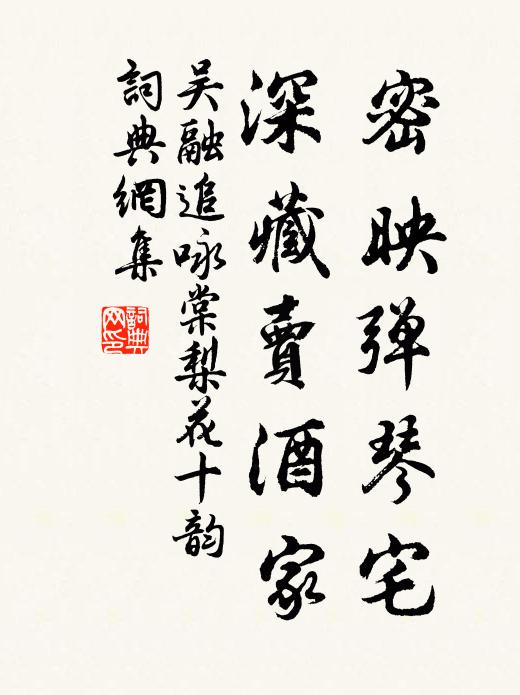 密映弹琴宅
深藏賣酒家
吴融追咏棠梨花十韵
詞典網集
詞典
网印